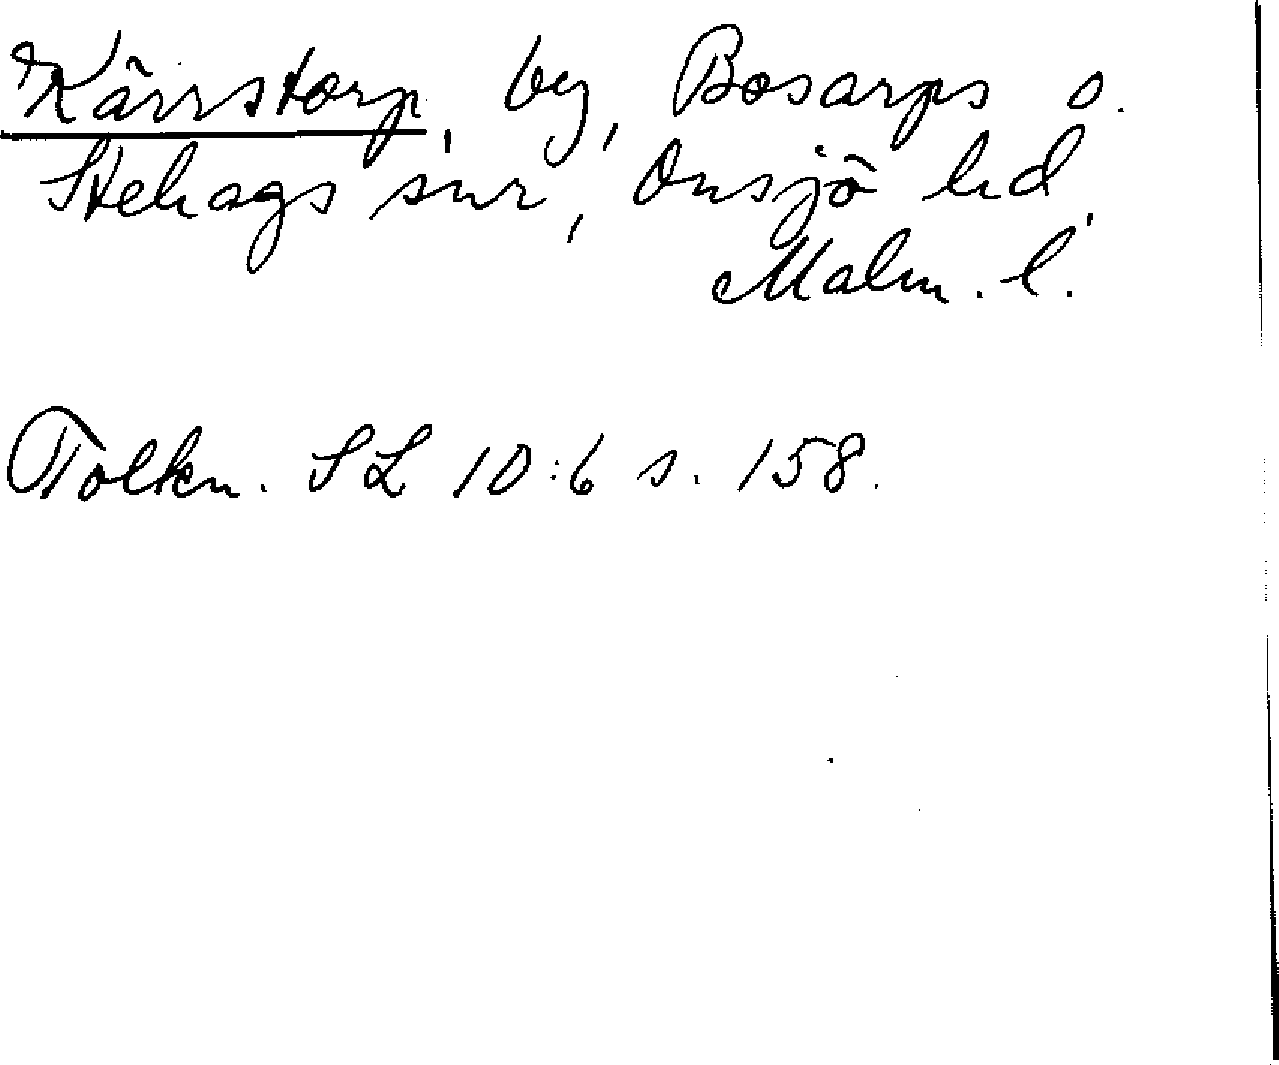 Kärrstorp, by, Bosarps o.
Stehags snr, Onsjö hd,
Malm. l.
Tolkn. SL 10:6 s. 158.